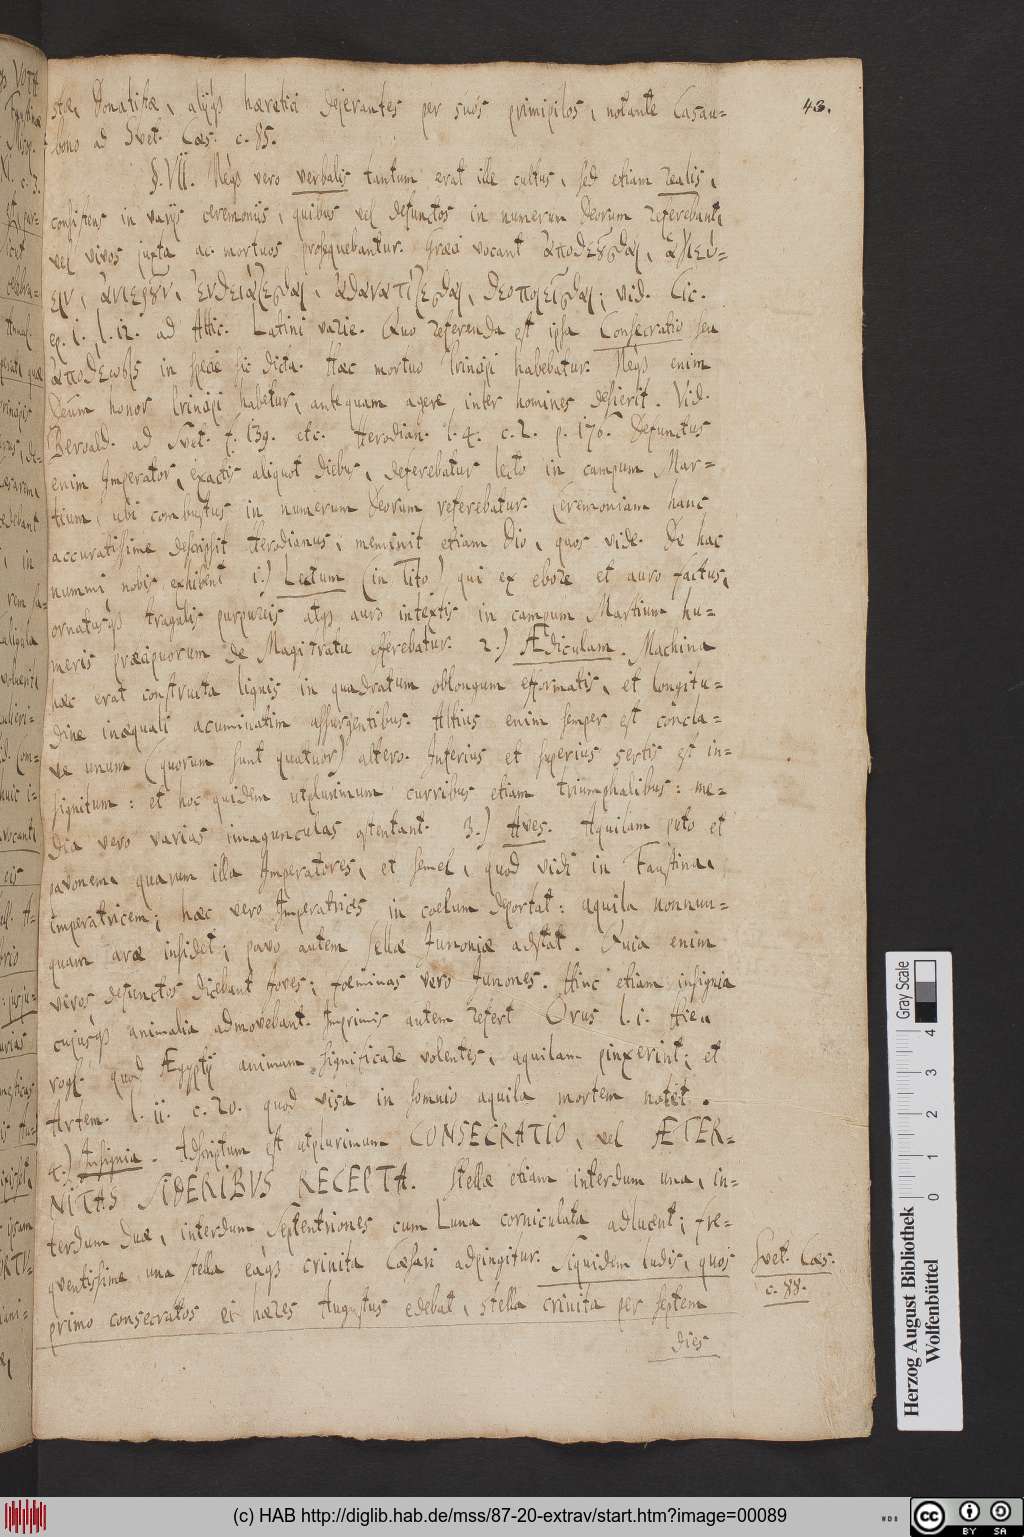 43.
stæ, Donatistæ, alijq3 hæretici dejerantes per suos primipilos, notante Casau=
bono ad Svet. Cæs. c. 85.
§. VII. Neq3 vero verbalis tantum erat ille cultus, sed etiam realis,
consistens in varijs ceremoniis, quibus vel defunctos in numerum Deorum referebant,
vel vivos juxta ac mortuos prosequebantur. Græci vocant
vid. Cic.
ep. 1. l. 12. ad Attic. Latini varie. Quo referenda est ipsa Consecratio seu
in specie sic dicta. Hæc mortuo Principi habebatur. Neq3 enim
Deûm honor Principi habetur, antequam agere inter homines desierit. Vid.
Beroald. ad Svet. f. 139. etc. Herodian. l. 4. c. 2. p. 170. Defunctus
enim Imperator, exactis aliquot diebus, deferebatur lecto in campum Mar=
tium, ubi combustus in numerum Deorum referebatur. Ceremoniam hanc
accuratissime descripsit Herodianus, meminit etiam Dio, quos vide. De hac
nummi nobis exhibent 1.) Lectum (in Tito) qui ex ebore et auro factus,
ornatusq3 tragulis purpureis atq3 auro intextis in campum Martium hu=
meris præcipuorum de Magistratu efferebatur. 2.) Ædiculam. Machina
hæc erat constructa lignis in quadratum oblongum efformatis, et longitu=
dine inæquali acuminatim assurgentibus. Altius enim semper est concla=
ve unum (quorum sunt quatuor) altero. Inferius et superius sertis est in=
signitum: et hoc quidem utplurimum curribus etiam triumphalibus: me=
dia vero varias imagunculas ostentant. 3.) Aves. Aquilam puto et
pavonem, quarum illa Imperatores, et semel, quod vidi in Faustina,
imperatricem; hæc vero Imperatrices in coelum deportat: aquila nonnun=
quam aræ insidet; pavo autem sellæ Junoniæ adstat. Quia enim
veros defunctos dicebant Joves; foeminas vero Junones. Hinc etiam insignia
cujusq3 animalia admovebant. Imprimis autem refert Orus l. 1. Hie,,
rogl. quod Ægyptij animum significare volentes, aquilam pinxerint; et
Artem. l. ii. c. 20. quod visa in somnio aquila mortem notet.
4.) Insignia. Adscriptum est utplurimum CONSECRATIO, vel ÆTER=
NITAS SIDERIBVS RECEPTA. Stellæ etiam interdum una, in=
terdum duæ, interdum Septentriones cum Luna corniculata adlucent; fre=
quentissime una stella eaq3 crinita Cæsari adpingitur. Siquidem ludis, quos
primo consecratos ei hæres Augustus edebat, stella crinita per septem
dies
Svet. Cæs.
c. 88.
Gray Scale
0 1 2 3 4
Herzog August Bibliothek
Wolfenbüttel
(c) HAB http://diglib.hab.de/mss/87-20-extrav/start.htm?image=00089
cc BY SA